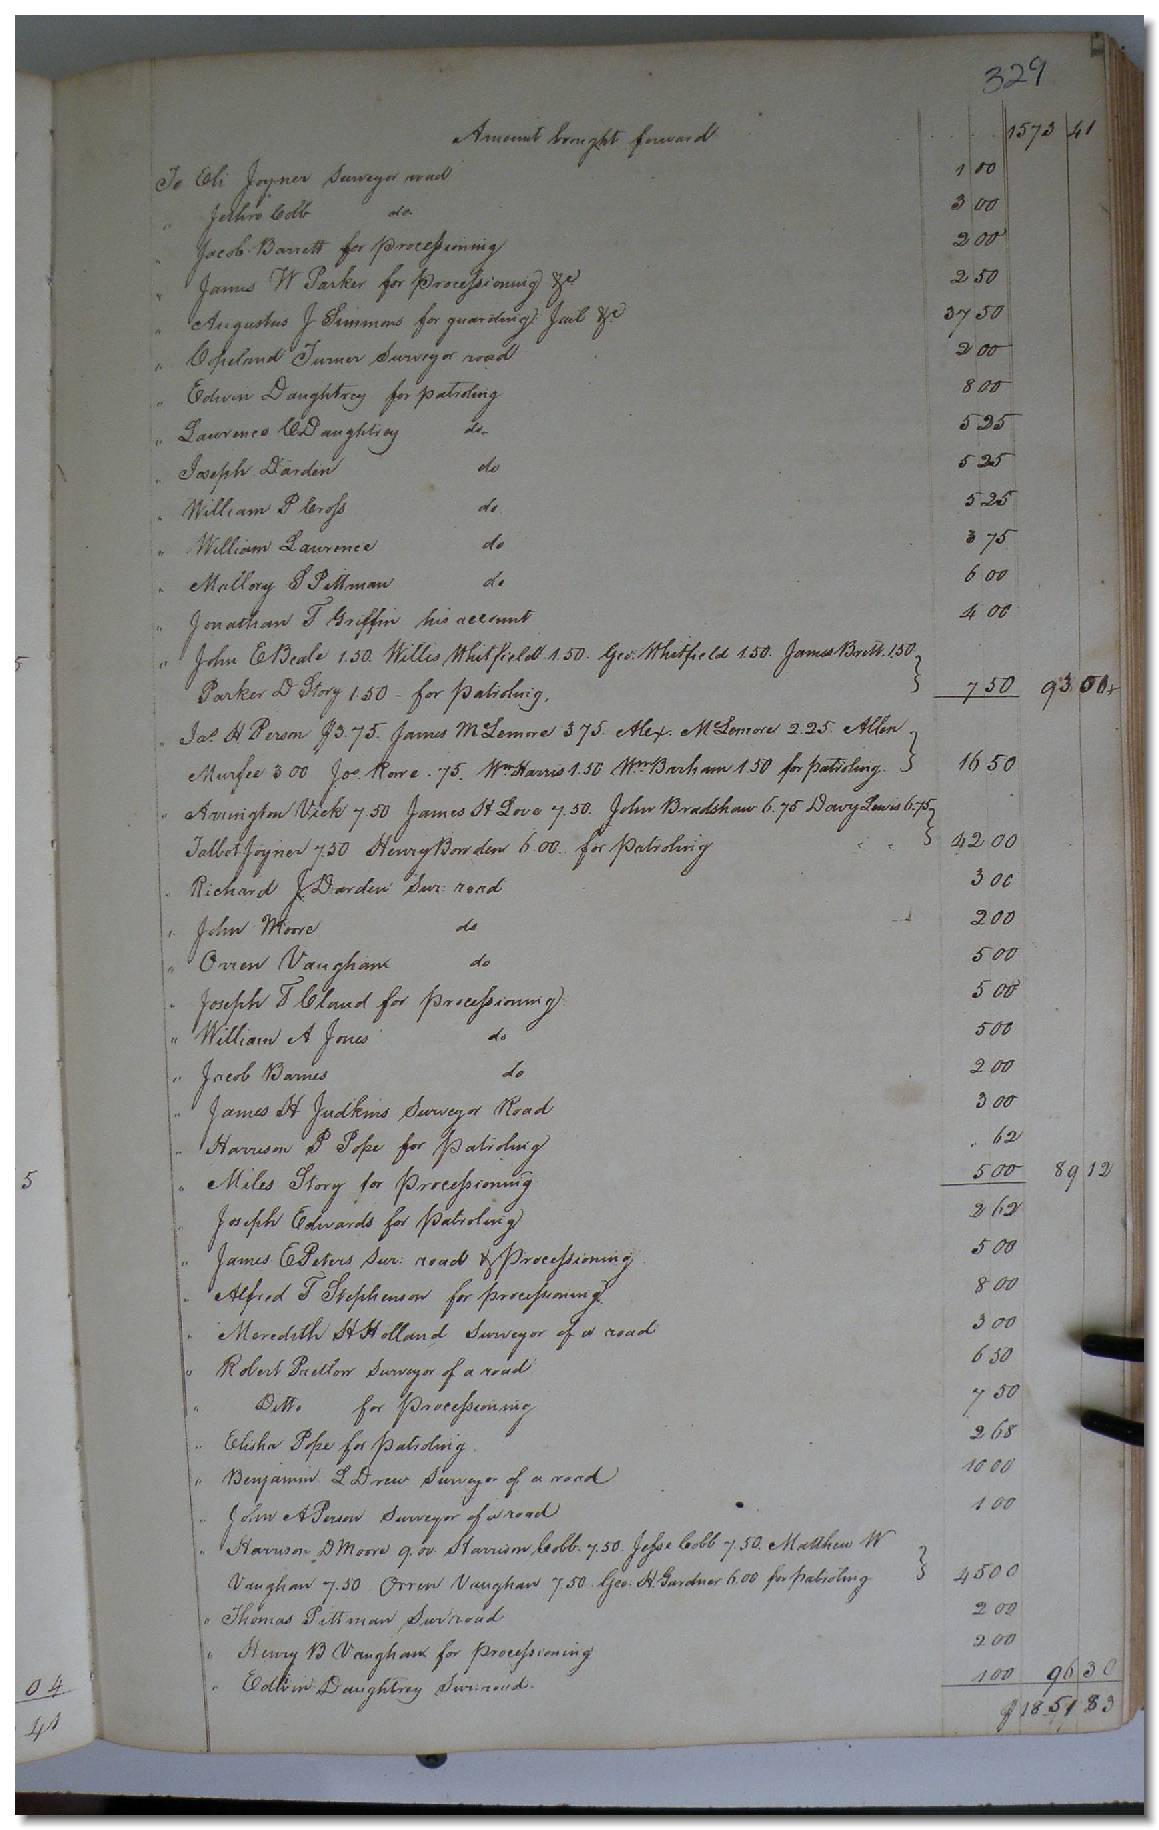 329
Amount brought forward 1573 41
To Eli Joyner Surveyor road 1 00
" Jethro Cobb do 3 00
" Jacob Barrett for processioning 2 00
" James W Parker for processioning &c 2 50
" Augustus J Simmons for guarding Jail &c 37 50
" Copeland Turner Surveyor road 2 00
" Edwin Daughtrey for patroling 8 00
" Lawrence C Daughtrey do 5 25
" Joseph Darden do 5 25
" William P Cross do 5 25
" William Lawrence do 3 75
" Mallory S Pittman do 6 00
" Jonathan T Griffin his account 4 00
" John E Beale 1.50. Willis Whitfield 1.50. Geo. Whitfield 1.50. James Brett 1.50
Parker D Story 1.50 - for patroling. 7 50 93 00
" Jas. H Person $3.75. James McLemore 3 75. Alex. McLemore 2.25. Allen
Murfee 3 00 Jos. Rowe .75. Wm Harris 1.50 Wm Barham 1.50 for patroling. 16 50
" Arrington Vick 7.50 James H Love 7.50. John Bradshaw 6.75 Davy Lewis 6.75
Talbot Joyner 7.50 Henry Bowden 6.00. for patroling 42 00
" Richard J Darden Sur: road 3 00
" John Moore do 2 00
" Orren Vaughan do 5 00
" Joseph T Claud for processioning 5 00
" William A Jones do 5 00
" Jacob Barnes do 2 00
" James H Judkins Surveyor Road 3 00
" Harrison P Pope for patroling . 62
" Miles Story for processioning 5 00 89 12
" Joseph Edwards for patroling 2 62
" James E Peters Sur: road & processioning 5 00
" Alfred T Stephenson for processioning 8 00
" Meredith H Holland Surveyor of a road 3 00
" Robert Pretlow Surveyor of a road 6 50
" Ditto for processioning 7 50
" Elisha Pope for patroling 2 68
" Benjamin L Drew Surveyor of a road 10 00
" John A Person Surveyor of a road 1 00
" Harrison D Moore 9.00. Harrison Cobb. 7.50. Jesse Cobb 7.50. Matthew W
Vaughan 7.50 Orren Vaughan 7.50. Geo. H. Gardner 6.00 for patroling 45 00
" Thomas Pittman Sur: road 2 00
" Henry B Vaughan for processioning 2 00
" Edwin Daughtrey Sur: road. 1 00 96 30
$1851 83
5
5
04
41